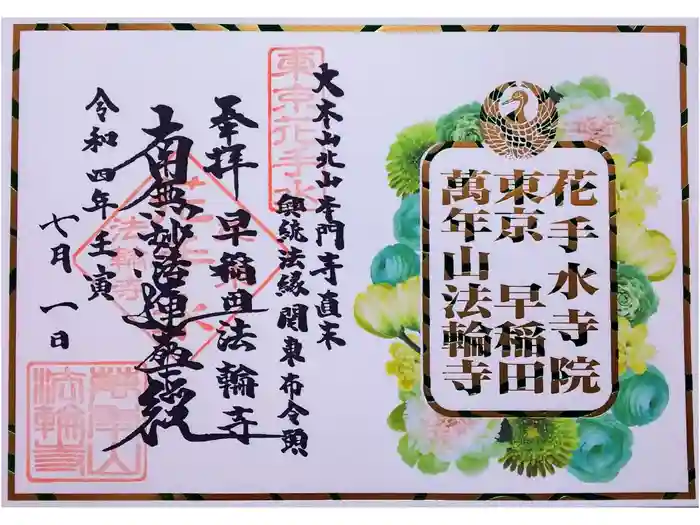 花手水寺院
東京 早稲田
萬年山法輪寺
大本山北山本門寺直末
興統法縁関東布令頭
東京花手水
奉拝 早稲田法輪寺
南無妙法蓮華経
令和四年壬寅
七月一日
法輪寺